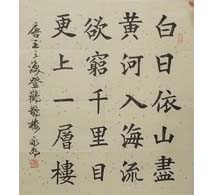 白日依山盡
黄河入海流
欲窮千里目
更上一層樓
唐王之渙登鸛雀樓